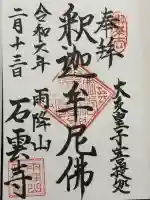 奉拝
大友皇子菩提処
釋迦牟尼佛
雨降山
石雲寺
令和六年
二月十三日